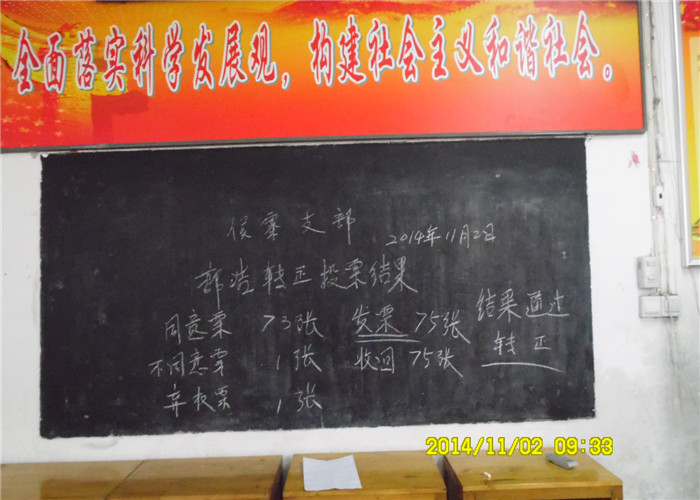 全面落实科学发展观，构建社会主义和谐社会。
侯寨支部
2014年11月2日
郭浩转正投票结果
同意票 73张 发票 75张 结果通过
不同意票 1张 收回 75张 转正
弃权票 1张
2014/11/02 09:33